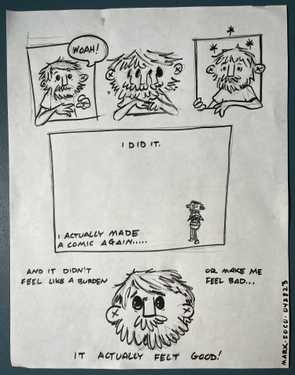 WOAH!
I DID IT.
I ACTUALLY MADE
A COMIC AGAIN.....
AND IT DIDN'T
FEEL LIKE A BURDEN
OR MAKE ME
FEEL BAD...
IT ACTUALLY FELT GOOD!